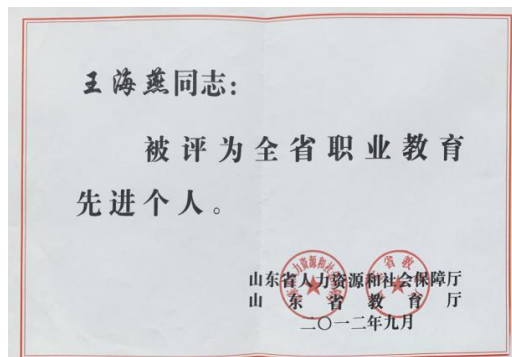 王海燕同志：
被评为全省职业教育
先进个人。
山东省人力资源和社会保障厅
山东省教育厅
二〇一二年九月